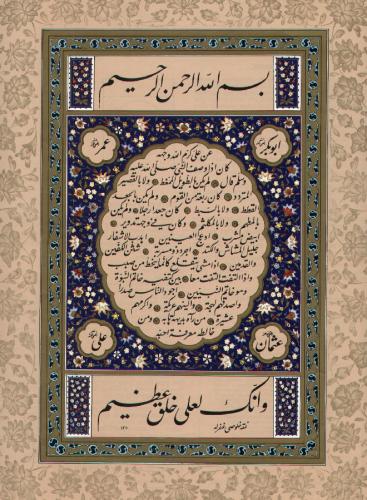 بسم الله الرحمن الرحيم
ابوبكر
عمر
عن علي كرم الله وجهه
كان اذا وصف النبي صلى الله عليه
وسلم قال لم يكن بالطويل الممغط ولا بالقصير
المتردد وكان ربعة من القوم ولم يكن بالجعد
القطط ولا بالسبط كان جعدا رجلا ولم يكن
بالمطهم ولا بالمكلثم وكان في وجهه تدوير
ابيض مشرب ادعج العينين اهدب الاشفار
جليل المشاش والكتد اجرد ذو مسربة شثن الكفين
والقدمين اذا مشى تقلع كانما ينحط من صبب
واذا التفت التفت معا بين كتفيه خاتم النبوة
وهو خاتم النبيين اجود الناس صدرا
واصدقهم لهجة والينهم عريكة واكرمهم
عشيرة من رآه بديهة هابه ومن
خالطه معرفة احبه
عثمان
علي
وانك لعلى خلق عظيم
نمقه خلوصي غفر له